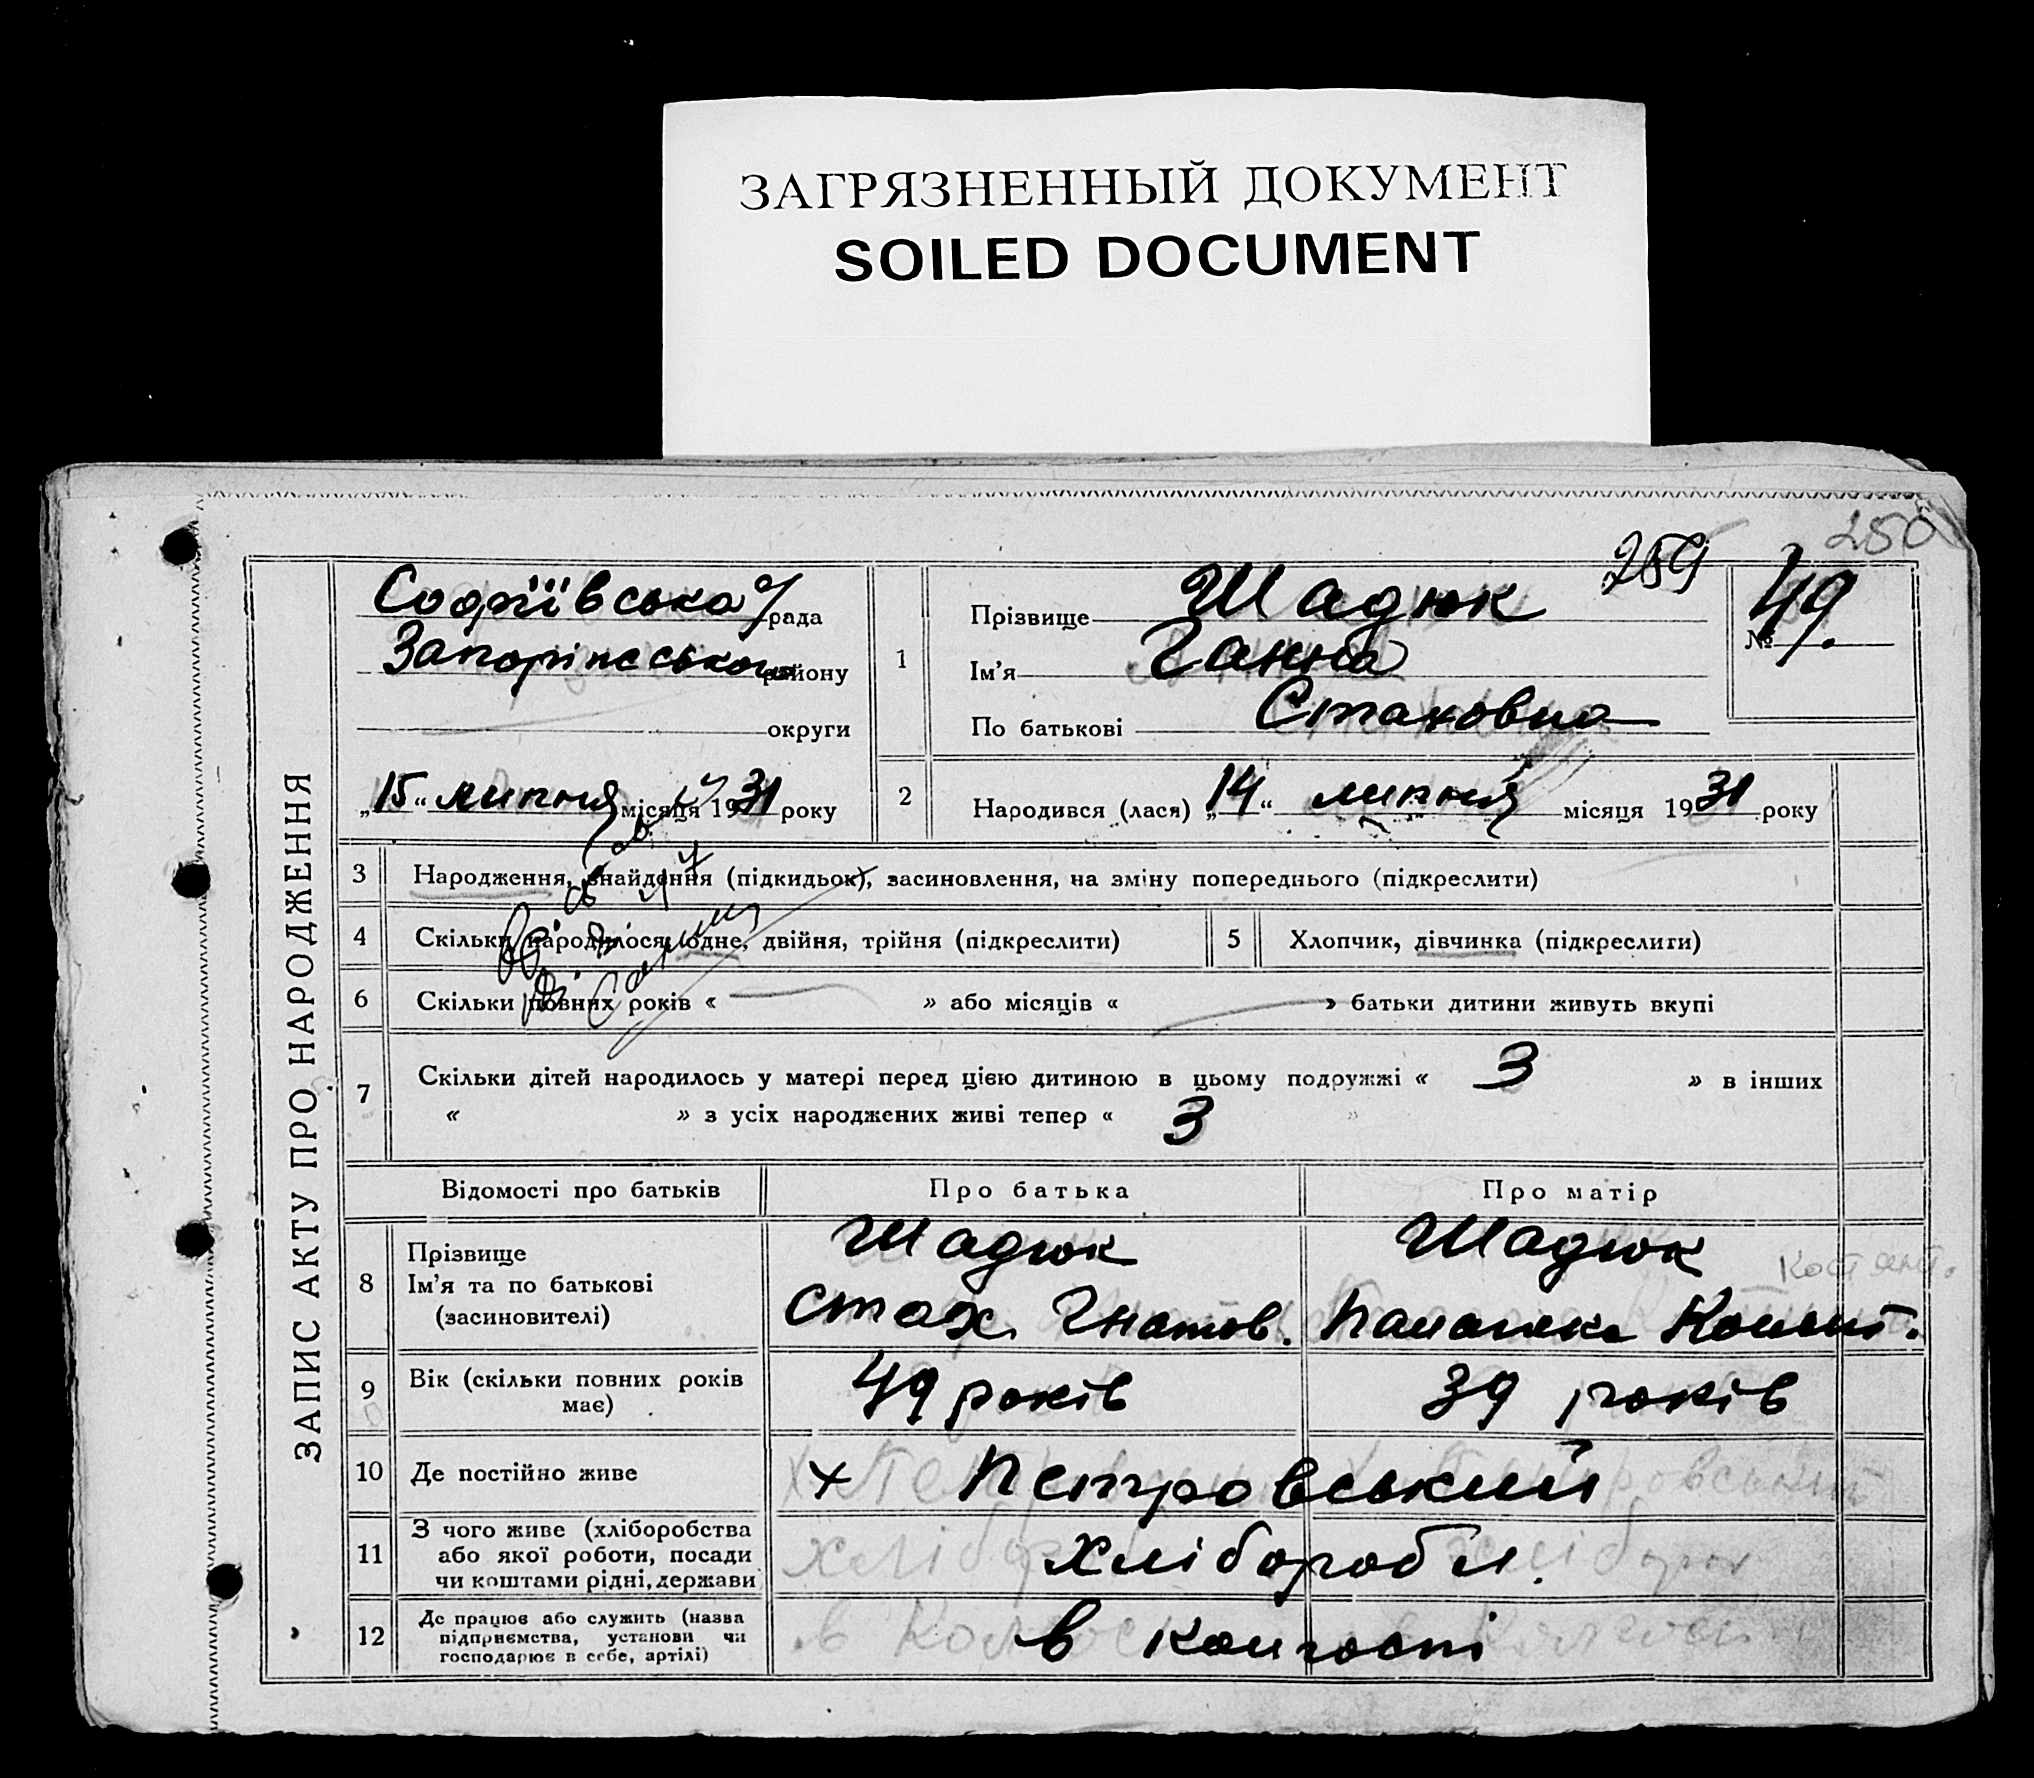 ЗАГРЯЗНЕННЫЙ ДОКУМЕНТ
SOILED DOCUMENT
250
259
ЗАПИС АКТУ ПРО НАРОДЖЕННЯ
Софіївська рада
району
округи
„15“ липня місяця 1931 року
1
Прізвище Шадюк
Ім'я Ганна
По батькові Стаховна
№ 49.
2
Народився (лася) „14“ липня місяця 1931 року
3 Народження, знайдення (підкидьок), засиновлення, на зміну попереднього (підкреслити)
4 Скільки народилося: одне, двійня, трійня (підкреслити)
5 Хлопчик, дівчинка (підкреслити)
6 Скільки повних років « » або місяців « » батьки дитини живуть вкупі
7 Скільки дітей народилось у матері перед цією дитиною в цьому подружжі « 3 » в інших
« » з усіх народжених живі тепер « 3 »
Відомості про батьків Про батька Про матір
8 Прізвище
Ім'я та по батькові
(засиновителі)
Шадюк
Стах Гнатов.
Шадюк
Костянт.
9 Вік (скільки повних років
має)
49 років 39 років
10 Де постійно живе х Петровський
11 З чого живе (хліборобства
або якої роботи, посади
чи коштами рідні, держави
Хлібороби
12 Де працює або служить (назва
підприємства, установи чи
господарює в себе, артілі)
в колгоспі